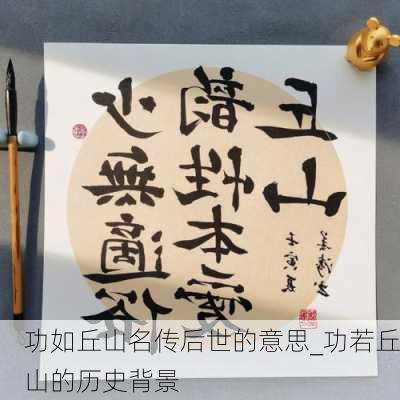 少無適俗
韻性本愛
丘山
壬寅夏
功如丘山名传后世的意思_功若丘
山的历史背景